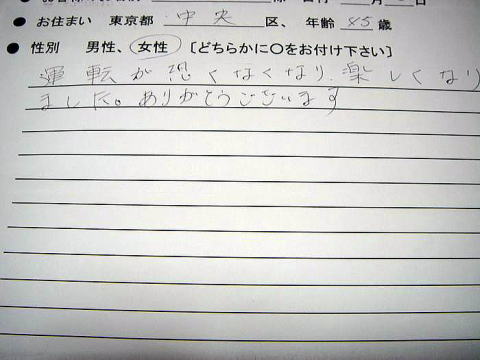 ● お住まい 東京都 中央 区、 年齢 45 歳
● 性別 男性、 女性 〔どちらかに○をお付け下さい〕
運転が恐くなくなり、楽しくなり
ました。ありがとうございます